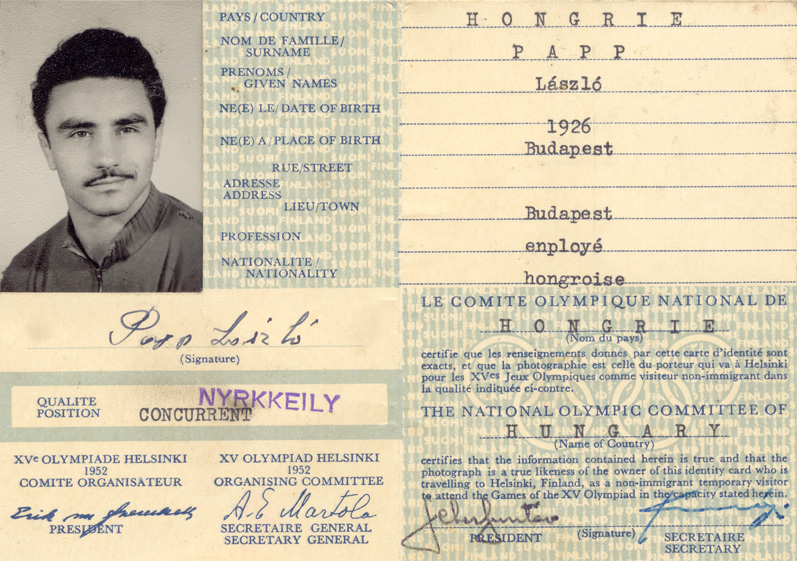 PAYS/COUNTRY
HONGRIE
NOM DE FAMILLE/
SURNAME
PAPP
PRENOMS/
GIVEN NAMES
László
NE(E) LE/DATE OF BIRTH
1926
NE(E) A/PLACE OF BIRTH
Budapest
RUE/STREET
ADRESSE
ADDRESS
LIEU/TOWN
Budapest
PROFESSION
enployé
NATIONALITE/
NATIONALITY
hongroise
Papp László
(Signature)
QUALITE
POSITION
NYRKKEILY
CONCURRENT
XVe OLYMPIADE HELSINKI
1952
COMITE ORGANISATEUR
PRESIDENT
XV OLYMPIAD HELSINKI
1952
ORGANISING COMMITTEE
SECRETAIRE GENERAL
SECRETARY GENERAL
LE COMITE OLYMPIQUE NATIONAL DE
HONGRIE
(Nom du pays)
certifie que les renseignements donnés par cette carte d'identité sont
exacts, et que la photographie est celle du porteur qui va à Helsinki
pour les XVes Jeux Olympiques comme visiteur non-immigrant dans
la qualité indiquée ci-contre.
THE NATIONAL OLYMPIC COMMITTEE OF
HUNGARY
(Name of Country)
certifies that the information contained herein is true and that the
photograph is a true likeness of the owner of this identity card who is
travelling to Helsinki, Finland, as a non-immigrant temporary visitor
to attend the Games of the XV Olympiad in the capacity stated herein.
PRESIDENT
(Signature)
SECRETAIRE
SECRETARY